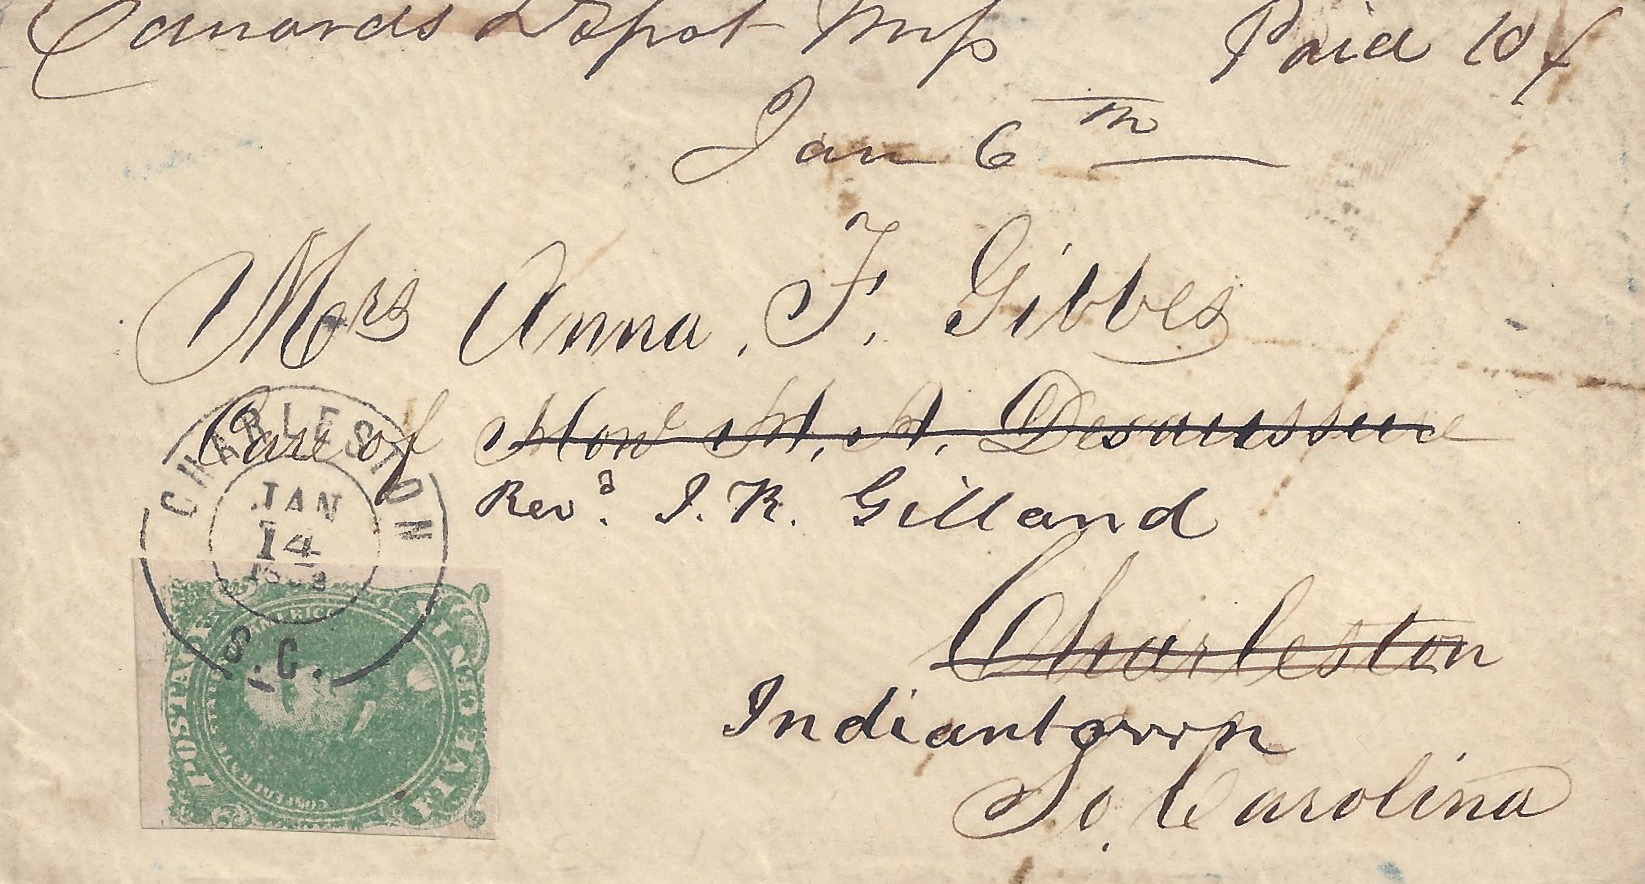 Edwards Depot Miss Paid 10 ¢
Jan 6th
Mrs Anna. F. Gibbes
Care of Hon W. A. Desaussure
Revd. J. R. Gilland
Charleston
Indiantown
So. Carolina
CHARLESTON
JAN
14
S.C.
POSTAGE
CONFEDERATE
FIVE CENTS